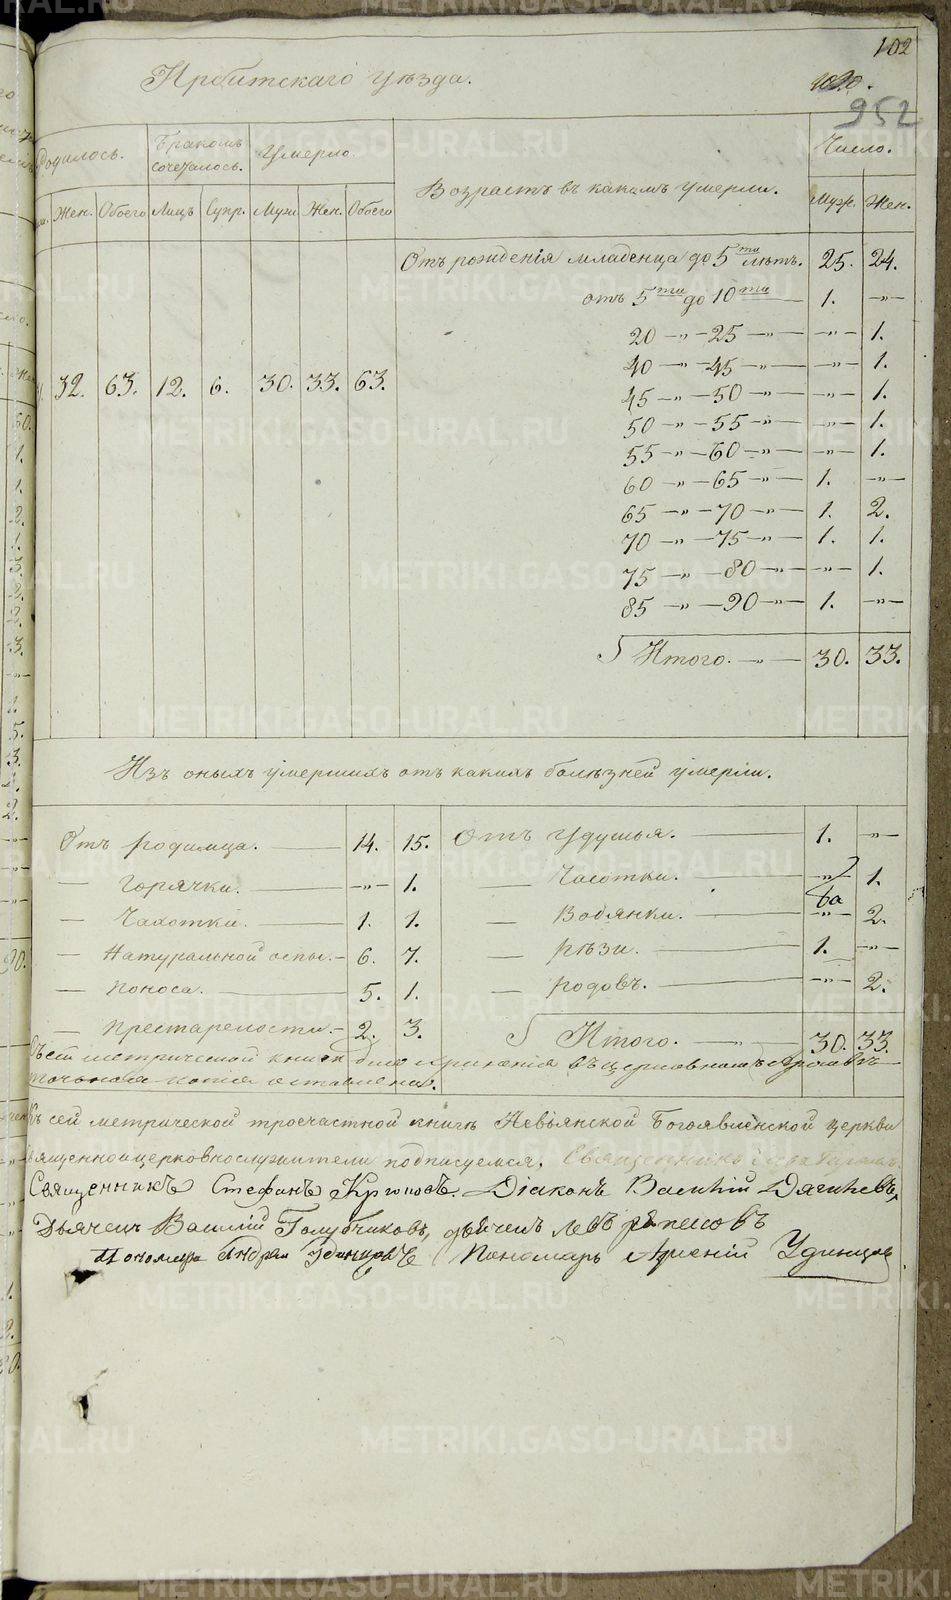 102
Ирбитскаго уѣзда.
952
Родилось. Бракомъ сочеталось. Умерло. Возрастъ въ какомъ умерли. Число.
Жен. Обоего Лицъ Супр. Муж. Жен. Обоего Муж. Жен.
Отъ рожденія младенца до 5ти лѣтъ. 25. 24.
отъ 5ти до 10ти 1. —„—
20 —„— 25 —„— —„— 1.
40 —„— 45 —„— —„— 1.
32. 63. 12. 6. 30. 33. 63.
45 —„— 50 —„— —„— 1.
50 —„— 55 —„— —„— 1.
55 —„— 60 —„— —„— 1.
60 —„— 65 —„— 1. —„—
65 —„— 70 —„— 1. 2.
70 —„— 75 —„— 1. 1.
75 —„— 80 —„— —„— 1.
85 —„— 90 —„— 1. —„—
Итого. —„— 30. 33.
Изъ оныхъ умершихъ отъ какихъ болѣзней умерли.
Отъ родимца. 14. 15. Отъ удушья. 1. —„—
— Горячки. —„— 1. — Чахотки. —„— 1.
— Чахотки. 1. 1. — Водянки. —„— 2.
— Натуральной оспы. 6. 7. — рѣзи. 1. —„—
— поноса. 5. 1. — родовъ. —„— 2.
— престарелости. 2. 3. Итого. —„— 30. 33.
Съ сей метрической книги для храненія въ церковномъ архивѣ
точьная копія оставлена.
Къ сей метрической троечастной книгѣ Невьянской Богоявленской церкви
священноицерковнослужители подписуемся. Священникъ
Священникъ Стефанъ Крюковъ. Діаконъ Василій Дягилевъ,
Дьячекъ Василій Голубчиковъ, дьячекъ Левъ
Пономарь Андрей Удинцовъ Пономарь Арсеній Удинцовъ
METRIKI.GASO-URAL.RU